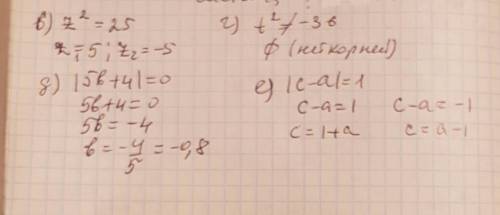 в) z² = 25
z₁=5; z₂=-5
г) t² ≠ -36
ф (нет корней)
д) |5b+4|=0
5b+4=0
5b=-4
b=-4/5=-0,8
е) |c-a|=1
c-a=1 c-a=-1
c=1+a c=a-1